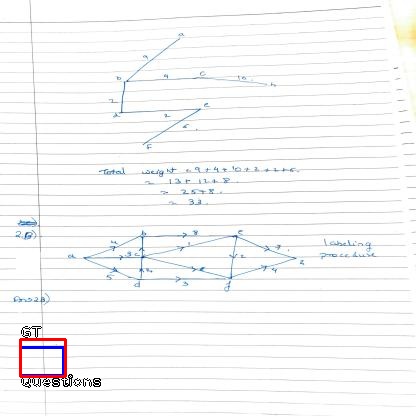 a
9
b 4 c 10 h
2
d 2 e
6
f
Total weight = 9+4+10+2+2+6.
= 13+12+8.
= 25+8.
= 33.
2.
b 8 e
4 7
a 3 c 1 2 z
5 d 3 f 4
labeling
procedure
Ans 2B)
GT
Questions